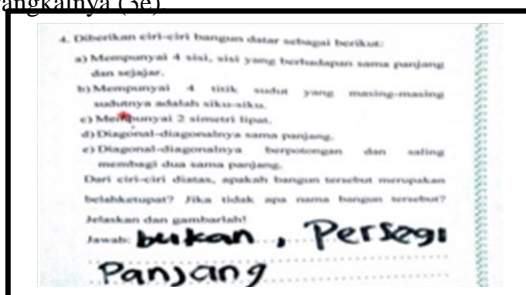 angkalnya (3e)
4. Diberikan ciri-ciri bangun datar sebagai berikut:
a) Mempunyai 4 sisi, sisi yang berhadapan sama panjang
dan sejajar.
b) Mempunyai 4 titik sudut yang masing-masing
sudutnya adalah siku-siku.
c) Mempunyai 2 simetri lipat.
d) Diagonal-diagonalnya sama panjang.
e) Diagonal-diagonalnya berpotongan dan saling
membagi dua sama panjang.
Dari ciri-ciri diatas, apakah bangun tersebut merupakan
belahketupat? Jika tidak apa nama bangun tersebut?
Jelaskan dan gambarlah!
Jawab: bukan, Persegi
Panjang